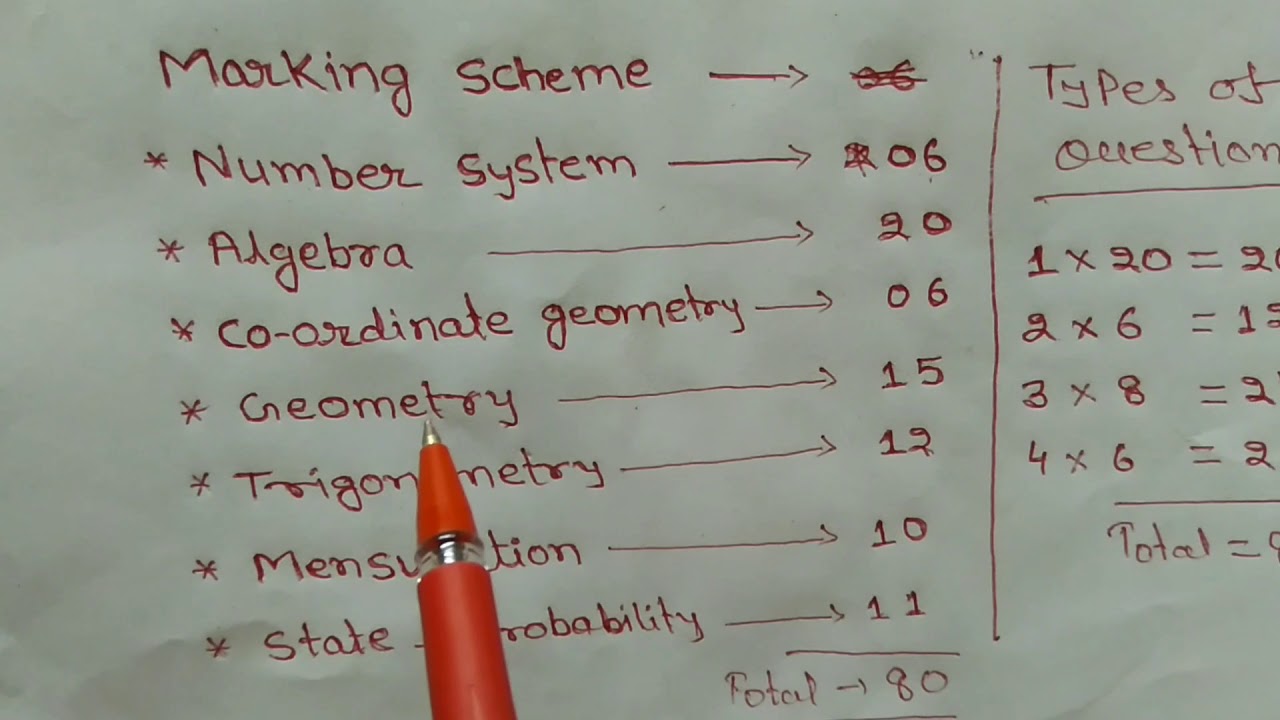 Marking Scheme →
* Number System → 06
* Algebra → 20
* Co-ordinate geometry → 06
* Geometry → 15
* Trigonometry → 12
* → 10
* State - → 11
Total → 80
Types of
Question
1 × 20 = 20
2 × 6 = 12
3 × 8 = 2
4 × 6 = 2
Total =